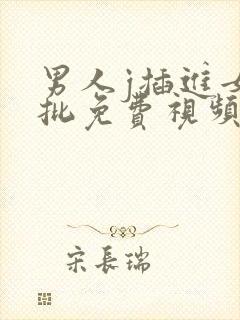 男人j插進女
批免費視頻
宋長瑞